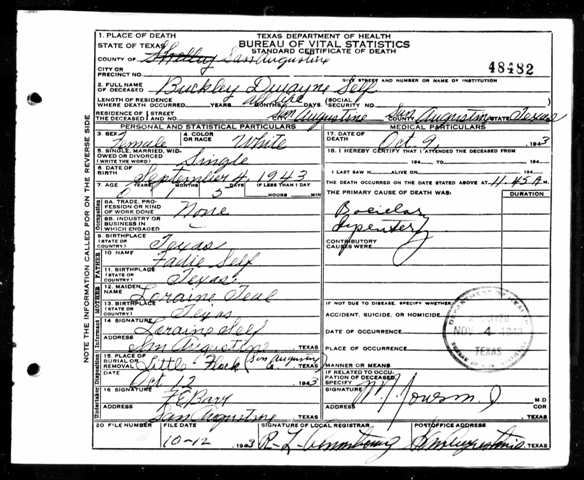 1. PLACE OF DEATH
STATE OF TEXAS
TEXAS DEPARTMENT OF HEALTH
BUREAU OF VITAL STATISTICS
STANDARD CERTIFICATE OF DEATH
COUNTY OF Shelby San Augustine
48482
CITY OR PRECINCT NO.
GIVE STREET AND NUMBER OR NAME OF INSTITUTION
2. FULL NAME OF DECEASED Buckley Dwayne Self
LENGTH OF RESIDENCE WHERE DEATH OCCURRED YEARS MONTHS DAYS (SOCIAL SECURITY NO.
RESIDENCE OF THE DECEASED STREET AND NO. San Augustine COUNTY San Augustine STATE Texas
PERSONAL AND STATISTICAL PARTICULARS
MEDICAL PARTICULARS
3. SEX Female 4. COLOR OR RACE White
17. DATE OF DEATH Oct 9 1943
5. SINGLE, MARRIED, WIDOWED OR DIVORCED (WRITE THE WORD) Single
18. I HEREBY CERTIFY THAT I ATTENDED THE DECEASED FROM
194 TO 194
6. DATE OF BIRTH September 4, 1943
I LAST SAW H ALIVE ON 194
7. AGE YEARS MONTHS DAYS IF LESS THAN 1 DAY
1 5 HOURS MIN
THE DEATH OCCURRED ON THE DATE STATED ABOVE AT 11.45 A M.
THE PRIMARY CAUSE OF DEATH WAS:
DURATION
8A. TRADE, PROFESSION OR KIND OF WORK DONE None
8B. INDUSTRY OR BUSINESS IN WHICH ENGAGED
CONTRIBUTORY CAUSES WERE:
9. BIRTHPLACE (STATE OR COUNTRY) Texas
10. NAME Fadie Self
11. BIRTHPLACE (STATE OR COUNTRY) Texas
12. MAIDEN NAME Loraine Teal
13. BIRTHPLACE (STATE OR COUNTRY) Texas
IF NOT DUE TO DISEASE, SPECIFY WHETHER:
ACCIDENT, SUICIDE, OR HOMICIDE
DATE OF OCCURRENCE
NOV 4 1943
TEXAS
14. SIGNATURE Loraine Self
ADDRESS San Augustine TEXAS
PLACE OF OCCURRENCE
15. PLACE OF BURIAL OR REMOVAL Little Flock (San Augustine Co. TEXAS
MANNER OR MEANS
DATE Oct 12 1943
IF RELATED TO OCCUPATION OF DECEASED, SPECIFY
16. SIGNATURE
M.D
ADDRESS San Augustine TEXAS
ADDRESS TEXAS
20. FILE NUMBER FILE DATE 10-12 1943
SIGNATURE OF LOCAL REGISTRAR
POSTOFFICE ADDRESS San Augustine TEXAS
NOTE THE INFORMATION CALLED FOR ON THE REVERSE SIDE
FATHER
MOTHER